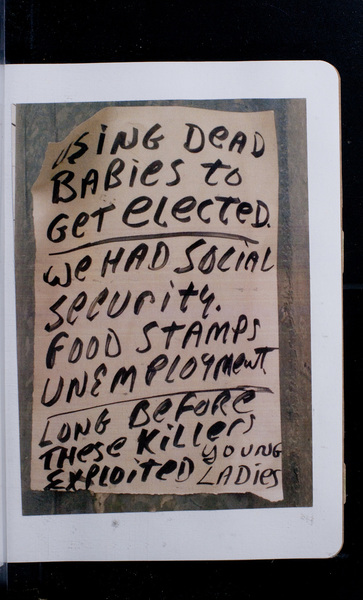 USING DEAD
BABIES to
GET ELECTED.
WE HAD SOCIAL
SECURITY.
FOOD STAMPS
UNEMPLOYMENT
LONG BEFORE
THESE KILLERS
EXPLOITED YOUNG
LADIES